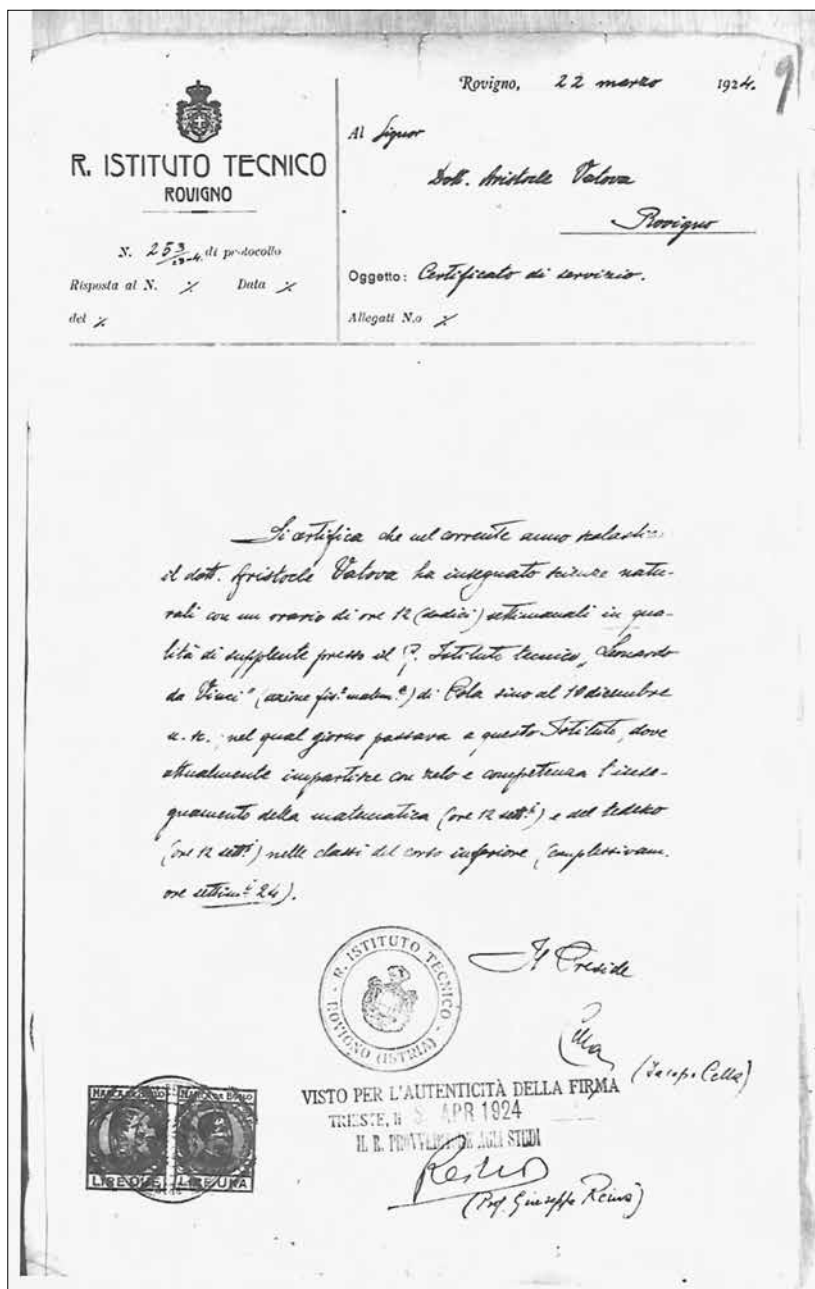 Rovigno, 22 marzo 1924.
9
R. ISTITUTO TECNICO
ROVIGNO
N. 253/23-4. di protocollo
Risposta al N. ٪ Data ٪
del ٪
Al Signor
Dott. Aristocle Vatova
Rovigno
Oggetto: Certificato di servizio.
Allegati N.o ٪
Si certifica che nel corrente anno scolastico
il dott. Aristocle Vatova ha insegnato scienze natu-
rali con un orario di ore 12 (dodici) settimanali in qua-
lità di supplente presso il R. Istituto tecnico „Leonardo
da Vinci" (sezione fis.º matem.ª) di Pola sino al 10 dicembre
u. s., nel qual giorno passava a questo Istituto, dove
attualmente impartisce con zelo e competenza l'inse-
gnamento della matematica (ore 12 sett.i) e del tedesco
(ore 12 sett.i) nelle classi del corso inferiore, (complessivam.
ore settim.i 24).
R. ISTITUTO TECNICO
ROVIGNO (ISTRIA)
Il Preside
Cella
(Jacopo Cella)
VISTO PER L'AUTENTICITÀ DELLA FIRMA
TRIESTE, li 5 APR 1924
IL R. PROVVEDITORE AGLI STUDI
Reina
(Prof. Giuseppe Reina)
MARCA DA BOLLO MARCA DA BOLLO
LIRE DUE LIRE UNA